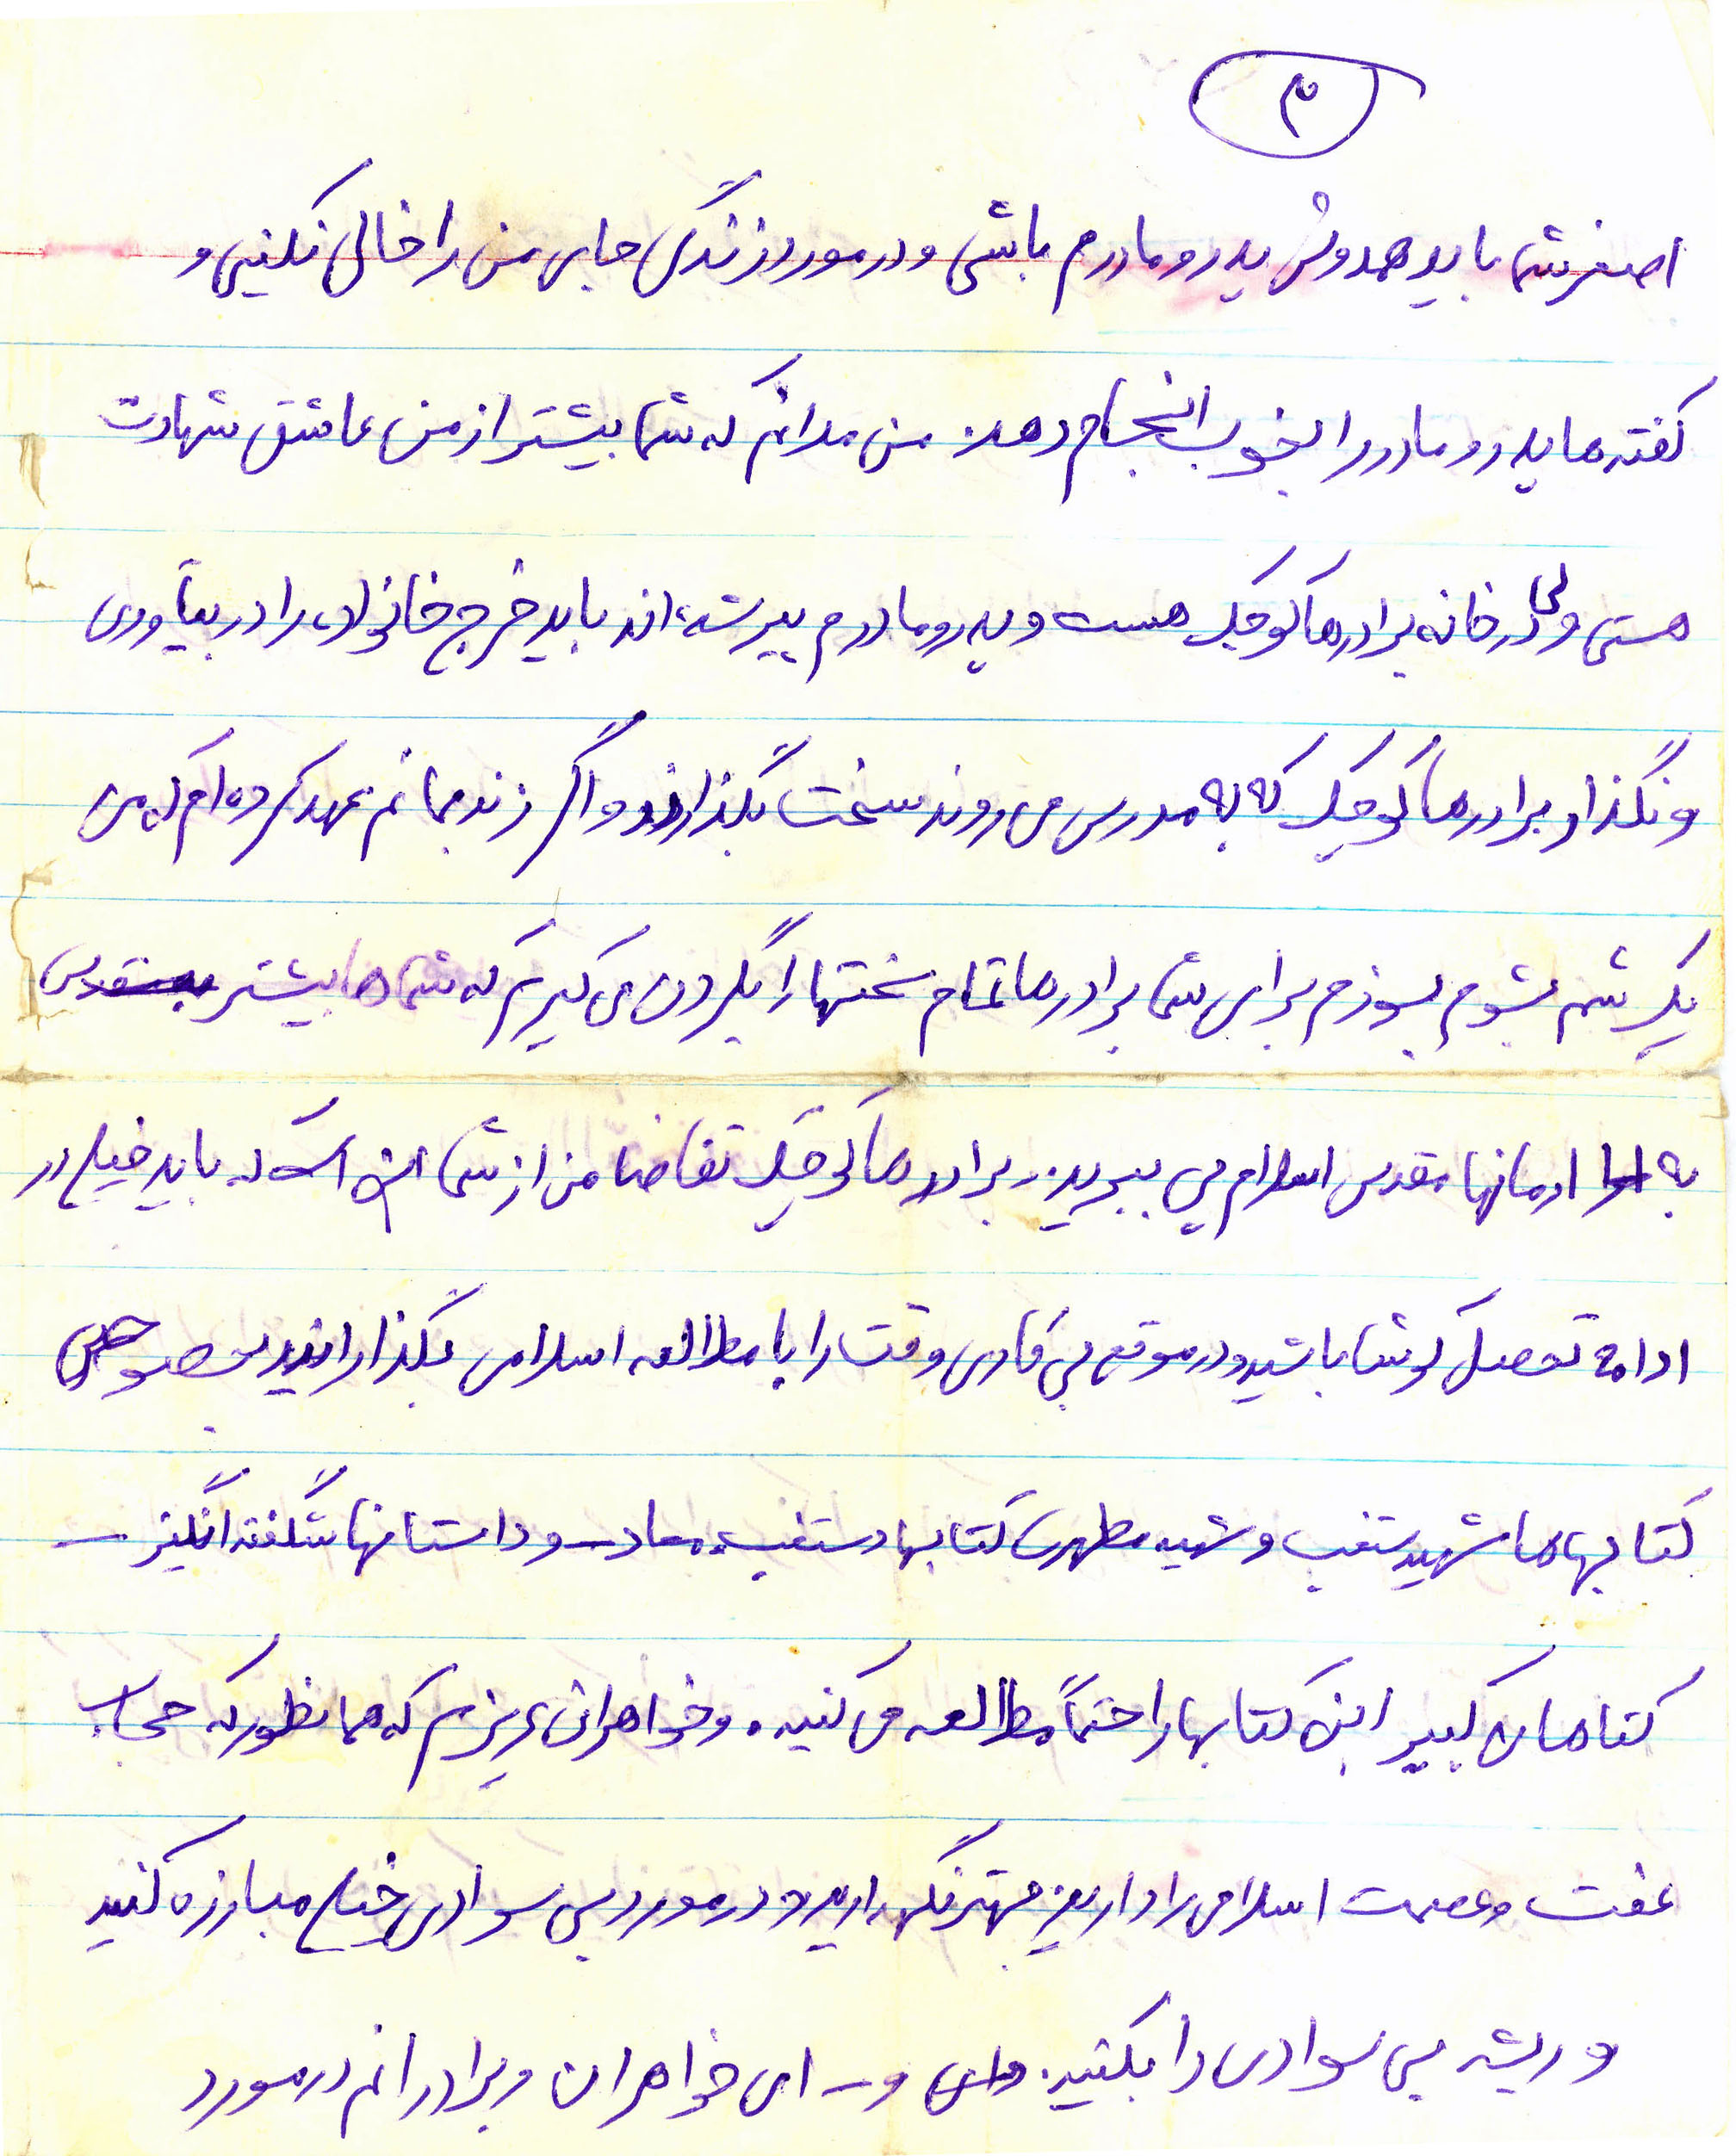 ۳
اصغر شما باید همدوش پدر و مادرم باشی و در مورد زندگی جای من را خالی نکنی و
گفته ها پدر و مادر را بخوب انجام دهد. من مدانم که شما بیشتر از من عاشق شهادت
هستی ولی در خانه برادرها کوچک هست و پدر و مادرم پیر شده اند باید خرج خانواده را در بیآوری
و نگذار برادرها کوچک که به مدرسه می روند سخت بگذارند و اگر زنده بمانم عهد کرده ام که من
یک شمع بشوم بسوزم برای شما برادرها تمام سختها را بگردن می گیرم که شماها بیشتر
به ارمانها مقدس اسلام پی ببرید. برادرها کوچک تقاضا من از شما این است که باید خیلی در
ادامه تحصیل کوشا باشید و در موقع بی کاری وقت را با مطالعه اسلامی بگذارانید بخصوص
کتابهاها شهید ستغیب و شهید مطهری کتابها دستغیب معاد ـ و داستانها شگفت انگیز ـ
کتاهان کبیر این کتابها را حتماً مطالعه می کنید. و خواهران عزیزم که همانطور که حجاب
عفت و عصمت اسلامی را دارید بهتر نگهدارید و در مورد بی سوادی خیلی مبارزه کنید
و ریشه بی سوادی را بکنید. و ـ ای خواهران و برادرانم در مورد